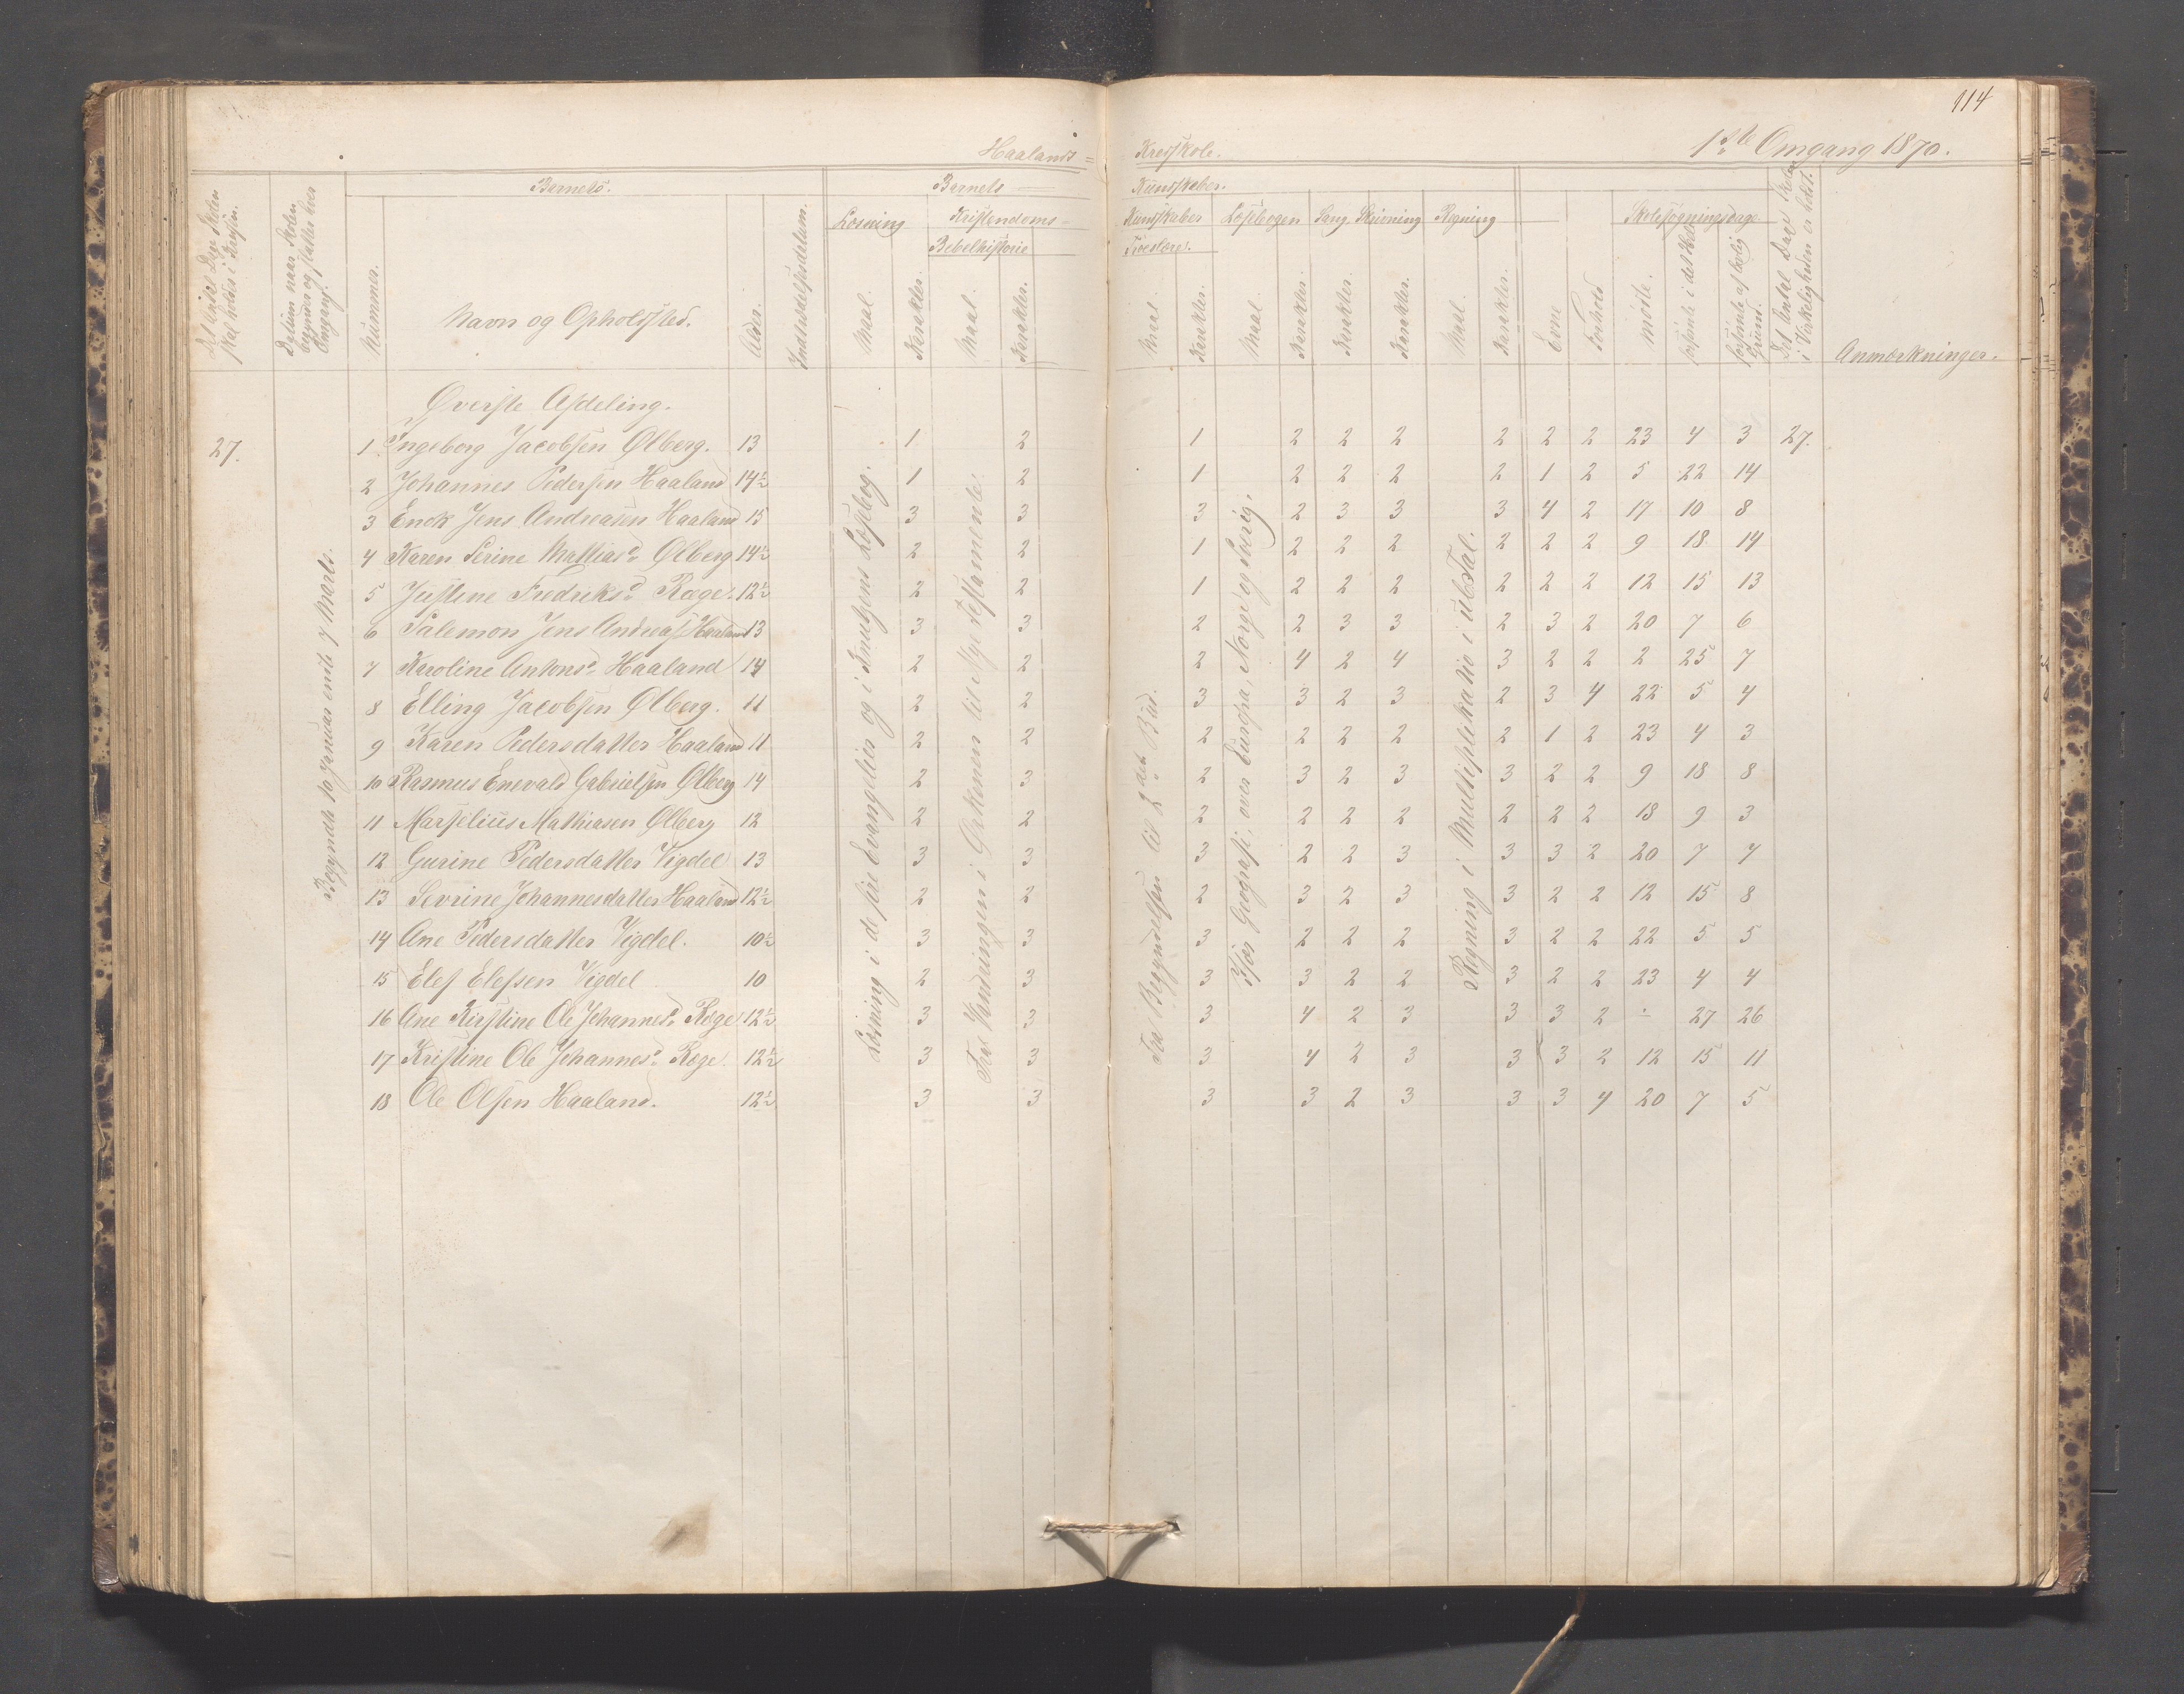 114
Haalands Kredsskole.
1ste Omgang 1870.
Barnets.
Barnets
Kundskaber.
Læsning
Kristendoms=
Bibelhistorie
Kundskaber
Troeslære.
Læsebogen
Sang.
Skrivning
Regning
Skolesøgningsdage
Det Antal Dage Skolen skal holdes i Kredsen.
Datum naar Skolen begynder og slutter hver Omgang.
Nummer.
Navn og Opholdssted.
Alder.
Indtrædelsesdatum.
Maal.
Karakter.
Maal.
Karakter.
Maal.
Karakter.
Maal.
Karakter.
Karakter.
Karakter.
Maal.
Karakter.
Evne
Forhold
mødte.
forsømte i det Hele
forsømte af lovlig Grund.
Det Antal Dage Skolen i Virkeligheden er holdt.
Anmærkninger.
Øverste Afdeling.
27. 1 Ingeborg Jacobsen Ølberg. 13 1 2 1 2 2 2 2 2 2 23 4 3 27.
2 Johannes Pedersen Haaland 14½ 1 2 1 2 2 2 2 1 2 5 22 14
3 Enok Jens Andreasen Haaland 15 3 3 3 2 3 3 3 4 2 17 10 8
4 Karen Serine Mathiasd. Ølberg 14½ 2 2 1 2 2 2 2 2 2 9 18 14
5 Justine Fredriksd. Ræge. 12½ 2 2 1 2 2 2 2 2 2 12 15 13
6 Salemon Jens Andreass. Haaland 13 3 3 2 2 3 3 2 3 2 20 7 6
7 Karoline Antonsd. Haaland 14 2 2 2 4 2 4 3 2 2 2 25 7
8 Elling Jacobsen Ølberg. 11 2 2 3 3 2 3 2 3 4 22 5 4
9 Karen Pedersdatter Haaland 11 2 2 2 2 2 2 2 1 2 23 4 3
10 Rasmus Enevald Gabrielsen Ølberg 14 2 3 2 3 2 3 3 2 2 9 18 8
11 Marselius Mathiasen Ølberg 12 2 2 2 2 2 2 2 2 2 18 9 3
12 Gurine Pedersdatter Vigdel 13 3 3 3 2 2 3 3 3 2 20 7 7
13 Sevrine Johannesdatter Haaland 12½ 2 2 2 3 2 3 3 2 2 12 15 8
14 Ane Pedersdatter Vigdel. 10½ 3 3 3 2 2 2 3 2 2 22 5 5
15 Elef Elefsen Vigdel 10 2 3 3 3 2 2 3 2 2 23 4 4
16 Ane Kirstine Ole Johannesd. Ræge 12½ 3 3 3 4 2 3 3 3 2 ÷ 27 26
17 Kristine Ole Johannesd. Ræge. 12½ 3 3 3 4 2 3 3 3 2 12 15 11
18 Ole Olsen Haaland. 12½ 3 3 3 3 2 3 3 3 4 20 7 5
Begyndte 10 Januar endte 7 Marts.
Læsning i de fire Evangelier og i Knudsens Læsebog.
Fra Vandringen i Ørkenen til Nye Testamente.
Fra Begyndelsen til 2det Bud.
Geografi, over Europa, Norge og Sverig.
Regning i Multiplikation i ub. Tal.